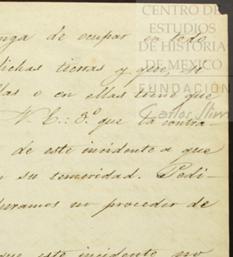 CENTRO DE
ESTUDIOS
DE HISTORIA
DE MEXICO
FUNDACIÓN
Carlos Slim
nga de ocupar en todo
dichas tierras y que, si
las o en ellas tiene que
N. E.: 3º que la contra-
de este incidente a que
su temeridad. Pedi-
juramos no proceder de
que este incidente no